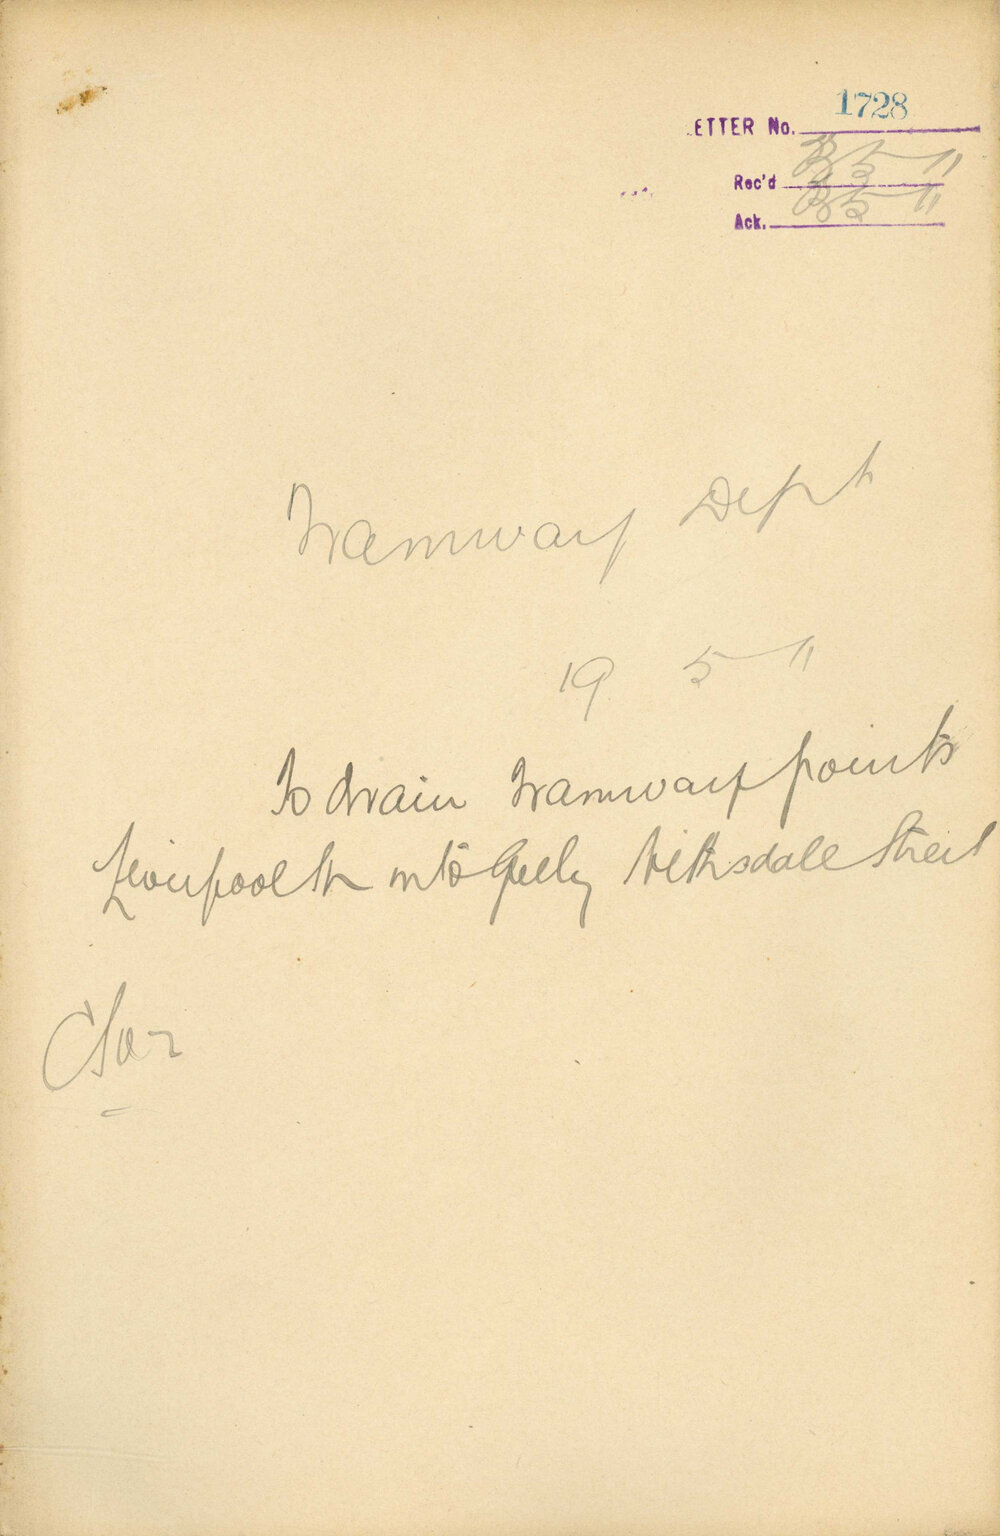 ETTER No. 1728
Rec'd 5 11
Ack. 5 11
Tramway Dept
19 5 11
To drain Tramway points
Liverpool St into Gully Nithsdale Street